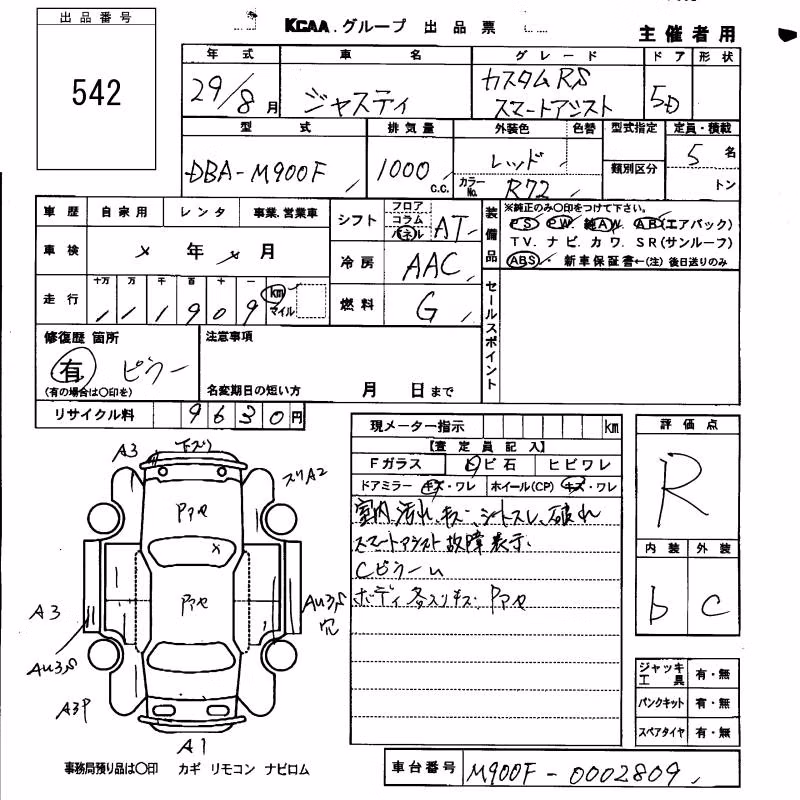 出品番号
542
KCAA.グループ 出品票
主催者用
年式 車名 グレード ドア 形状
29/8月 ジャスティ カスタムRS スマートアシスト 5D
型式 排気量 外装色 色替 型式指定 定員・積載
類別区分
DBA-M900F 1000 c.c. レッド 5名
カラーNo. R72 トン
車歴 自家用 レンタ 事業.営業車
車検 年 月
走行 十万 万 千 百 十 一
1 1 1 9 0 9 km マイル
シフト フロア コラム パネル AT
冷房 AAC
燃料 G
装備品
※純正のみ〇印をつけて下さい。
PS PW 純AW. AB(エアバック)
TV. ナビ. カワ. SR(サンルーフ)
ABS 新車保証書←(注)後日送りのみ
セールスポイント
修復歴 箇所
有 ピラー
(有の場合は〇印を)
注意事項
名変期日の短い方 月 日まで
リサイクル料 9630円
現メーター指示 km
【査定員記入】
Fガラス ヒビ石 ヒビワレ
ドアミラー キズ・ワレ ホイール(CP) キズ・ワレ
室内汚れ、キズ、シートスレ、破れ
スマートアシスト故障表示
Cピラー
ボディ各スリキズ
評価点
R
内装 外装
b c
ジャッキ工具 有・無
パンクキット 有・無
スペアタイヤ 有・無
A3 下ズリ
スリA2
A3
AU3,S
AU3,S
穴
A3P
A1
事務局預り品は〇印 カギ リモコン ナビロム
車台番号 M900F-0002809